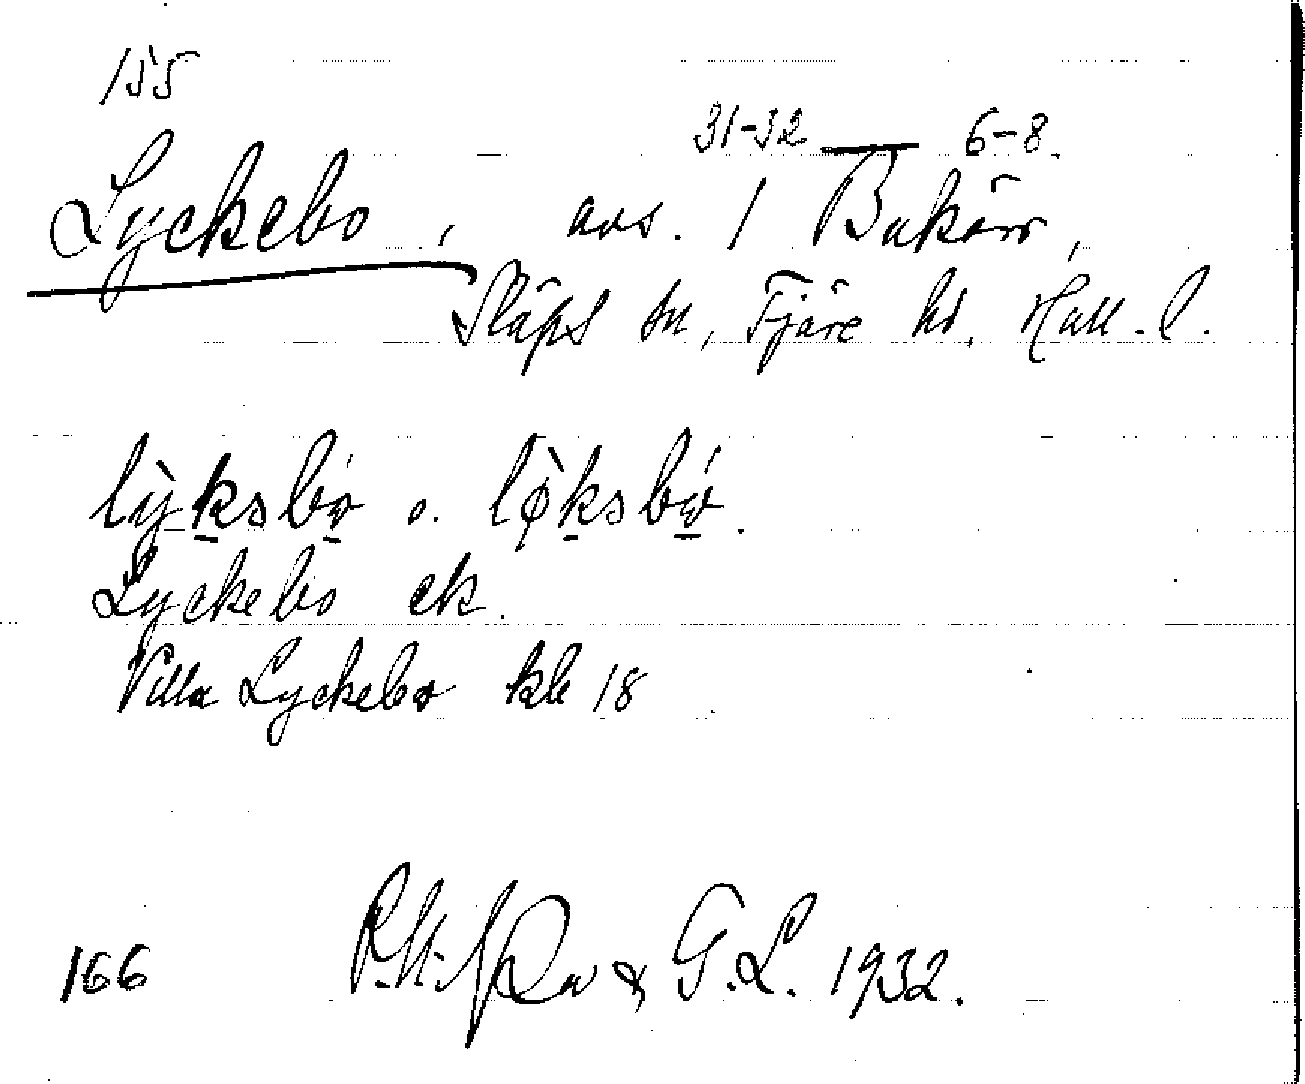 155
31-32 — 6-8.
Lyckebo, avs. 1 Bukärr,
Släps sn, Fjäre hd, Hall. l.
lỳksbo̱ o. lø̀ksbo̱.
Lyckebo ek.
Villa Lyckebo kb 18
166 & G.L. 1932.